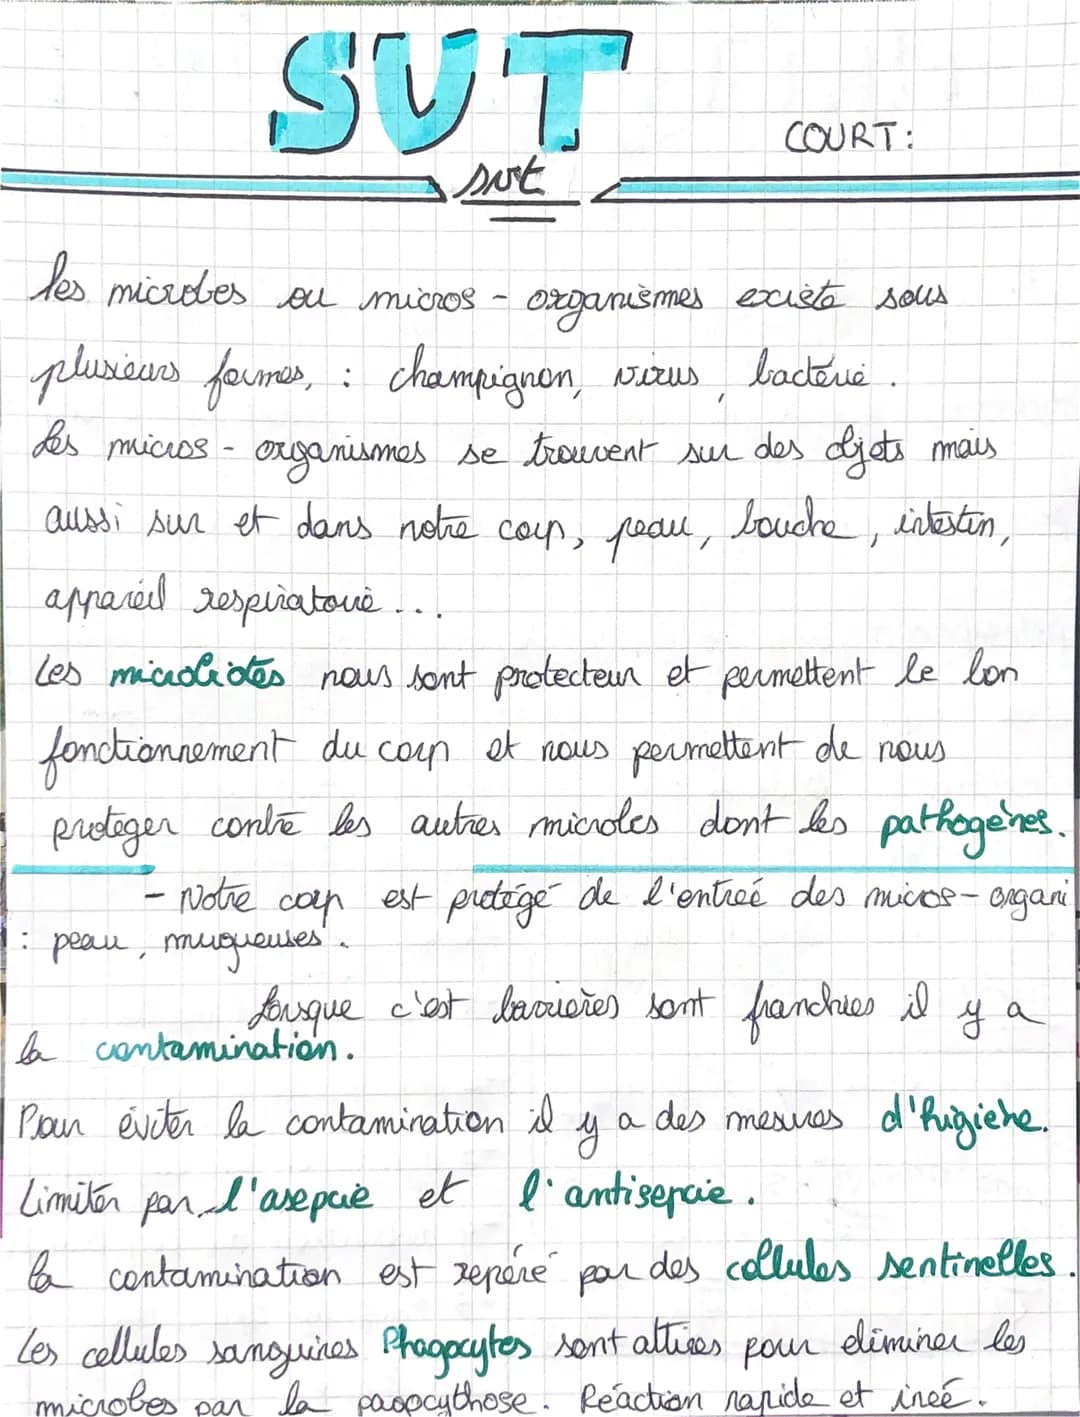 SVT
COURT:
svt
les microbes ou micros - organismes existe sous
plusieurs formes, : champignon, virus, bactérie.
Les micros - organismes se trouvent sur des objets mais
aussi sur et dans notre corp, peau, bouche, intestin,
appareil respiratoire...
Les microbiotes nous sont protecteur et permettent le bon
fonctionnement du corp et nous permettent de nous
proteger contre les autres microbes dont les pathogènes.
- Notre corp est protégé de l'entreé des micros - organi
: peau, muqueuses.
Lorsque c'est barrieres sont franchies il y a
la contamination.
Pour éviter la contamination il y a des mesures d'higiene.
Limiter par l'asepcie et l'antisepcie.
la contamination est repéré par des cellules sentinelles.
Les cellules sanguines Phagocytes sont attires pour eliminer les
microbes par la pagocythose. Réaction rapide et ineé.